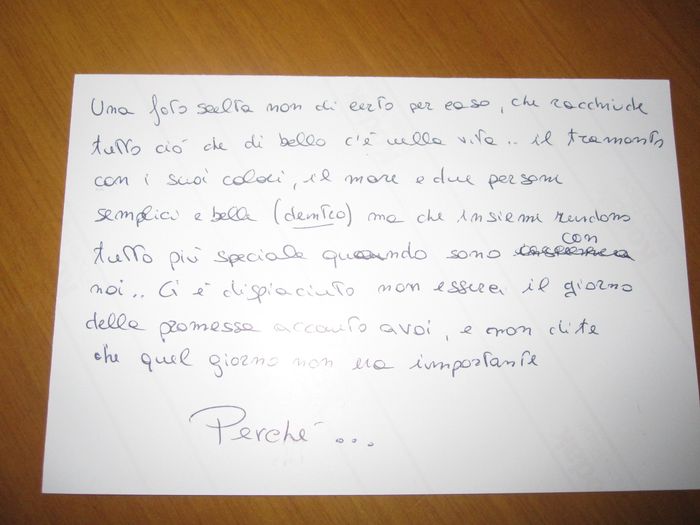 Una foto scelta non di certo per caso, che racchiude
tutto ciò che di bello c'è nella vita.. il tramonto
con i suoi colori, il mare e due persone
semplici e belle (dentro) ma che insieme rendono
tutto più speciale quando sono con
noi.. Ci è dispiaciuto non esserci il giorno
della promessa accanto a voi, e non dite
che quel giorno non era importante
Perché...